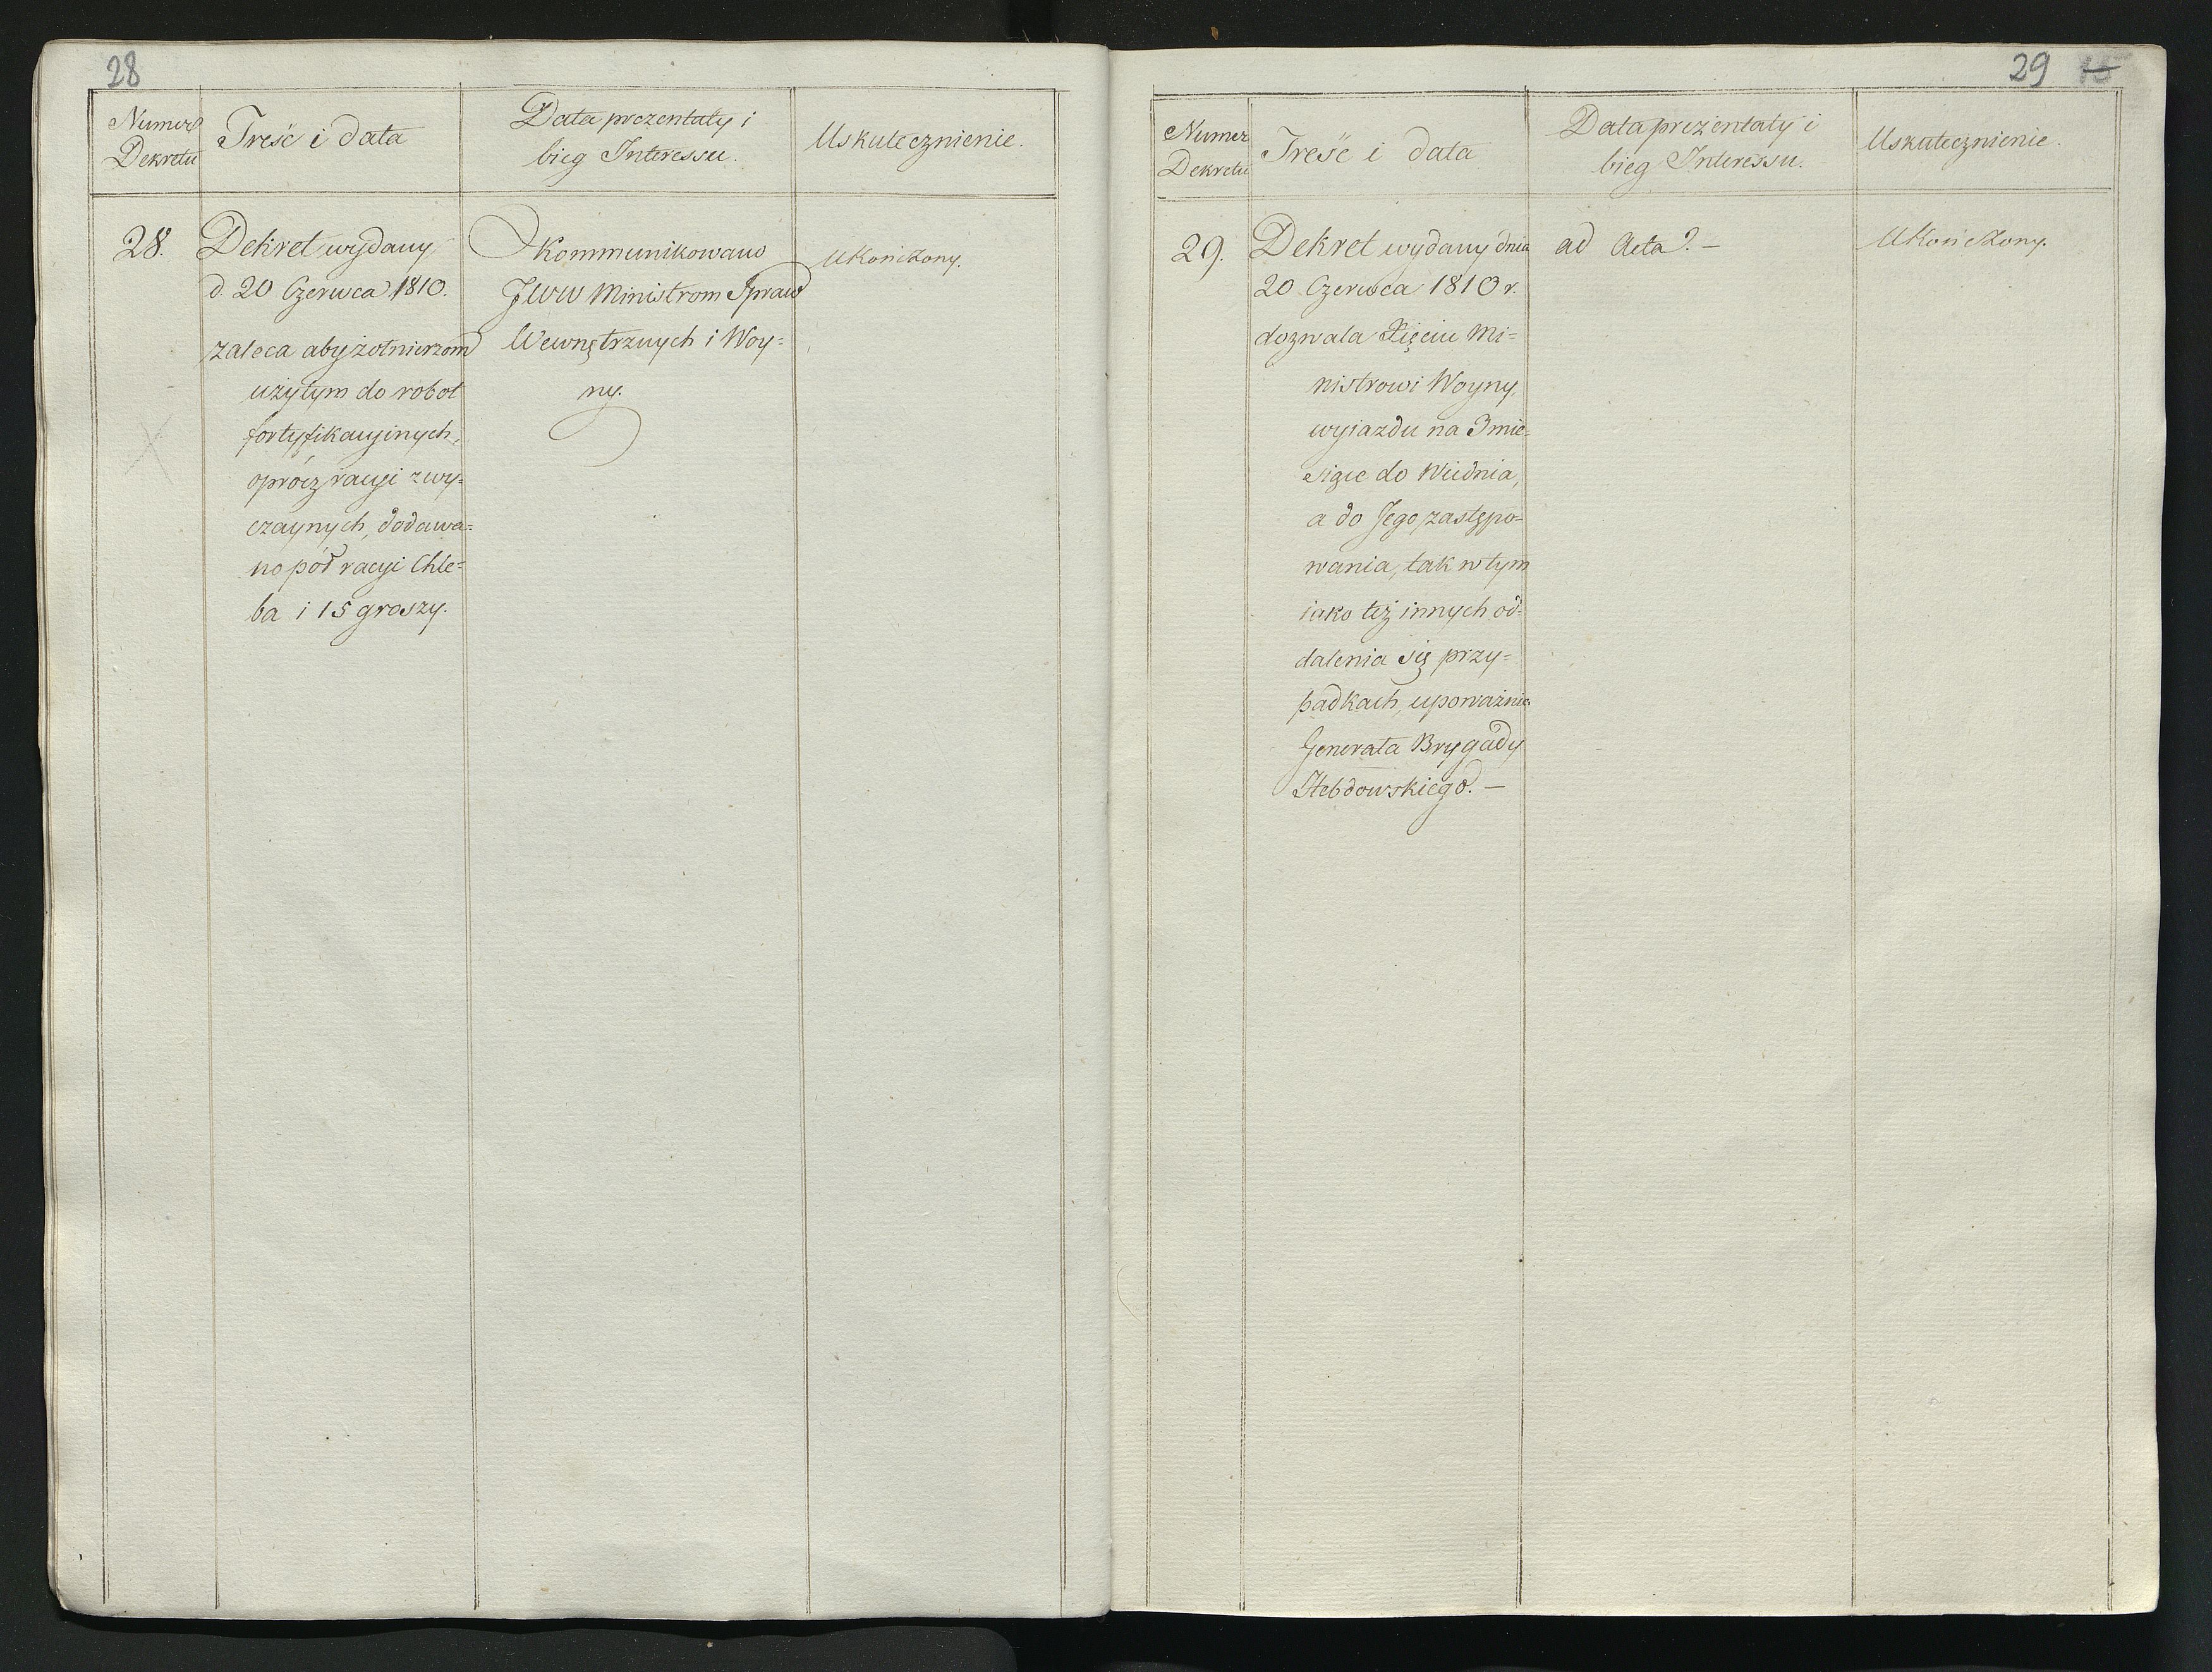 28
Numer
Dekretu
Treść i data
Data prezentaty i
bieg Interessu.
Uskutecznienie.
28.
Dekret wydany
d. 20 Czerwca 1810.
zaleca aby żołnierzom
użytym do robot
fortyfikacyinych,
oprócz racyi zwy=
czaynych, dodawa=
no pół racyi Chle=
ba i 15 groszy.
Kommunikowano
JWW Ministrom Spraw
Wewnętrznych i Woy=
ny.
Ukończony.
29
Numer
Dekretu
Treść i data
Data prezentaty i
bieg Interessu.
Uskutecznienie.
29.
Dekret wydany dnia
20 Czerwca 1810 r.
dozwala Xięciu Mi=
nistrowi Woyny,
wyiazdu na 3 mie=
siące do Wiednia,
a do Jego zastępo=
wania, tak w tym
iako też innych od=
dalenia się przy=
padkach, upoważnia
Generała Brygady
Hebdowskiego. —
ad Acta. —
Ukończony.